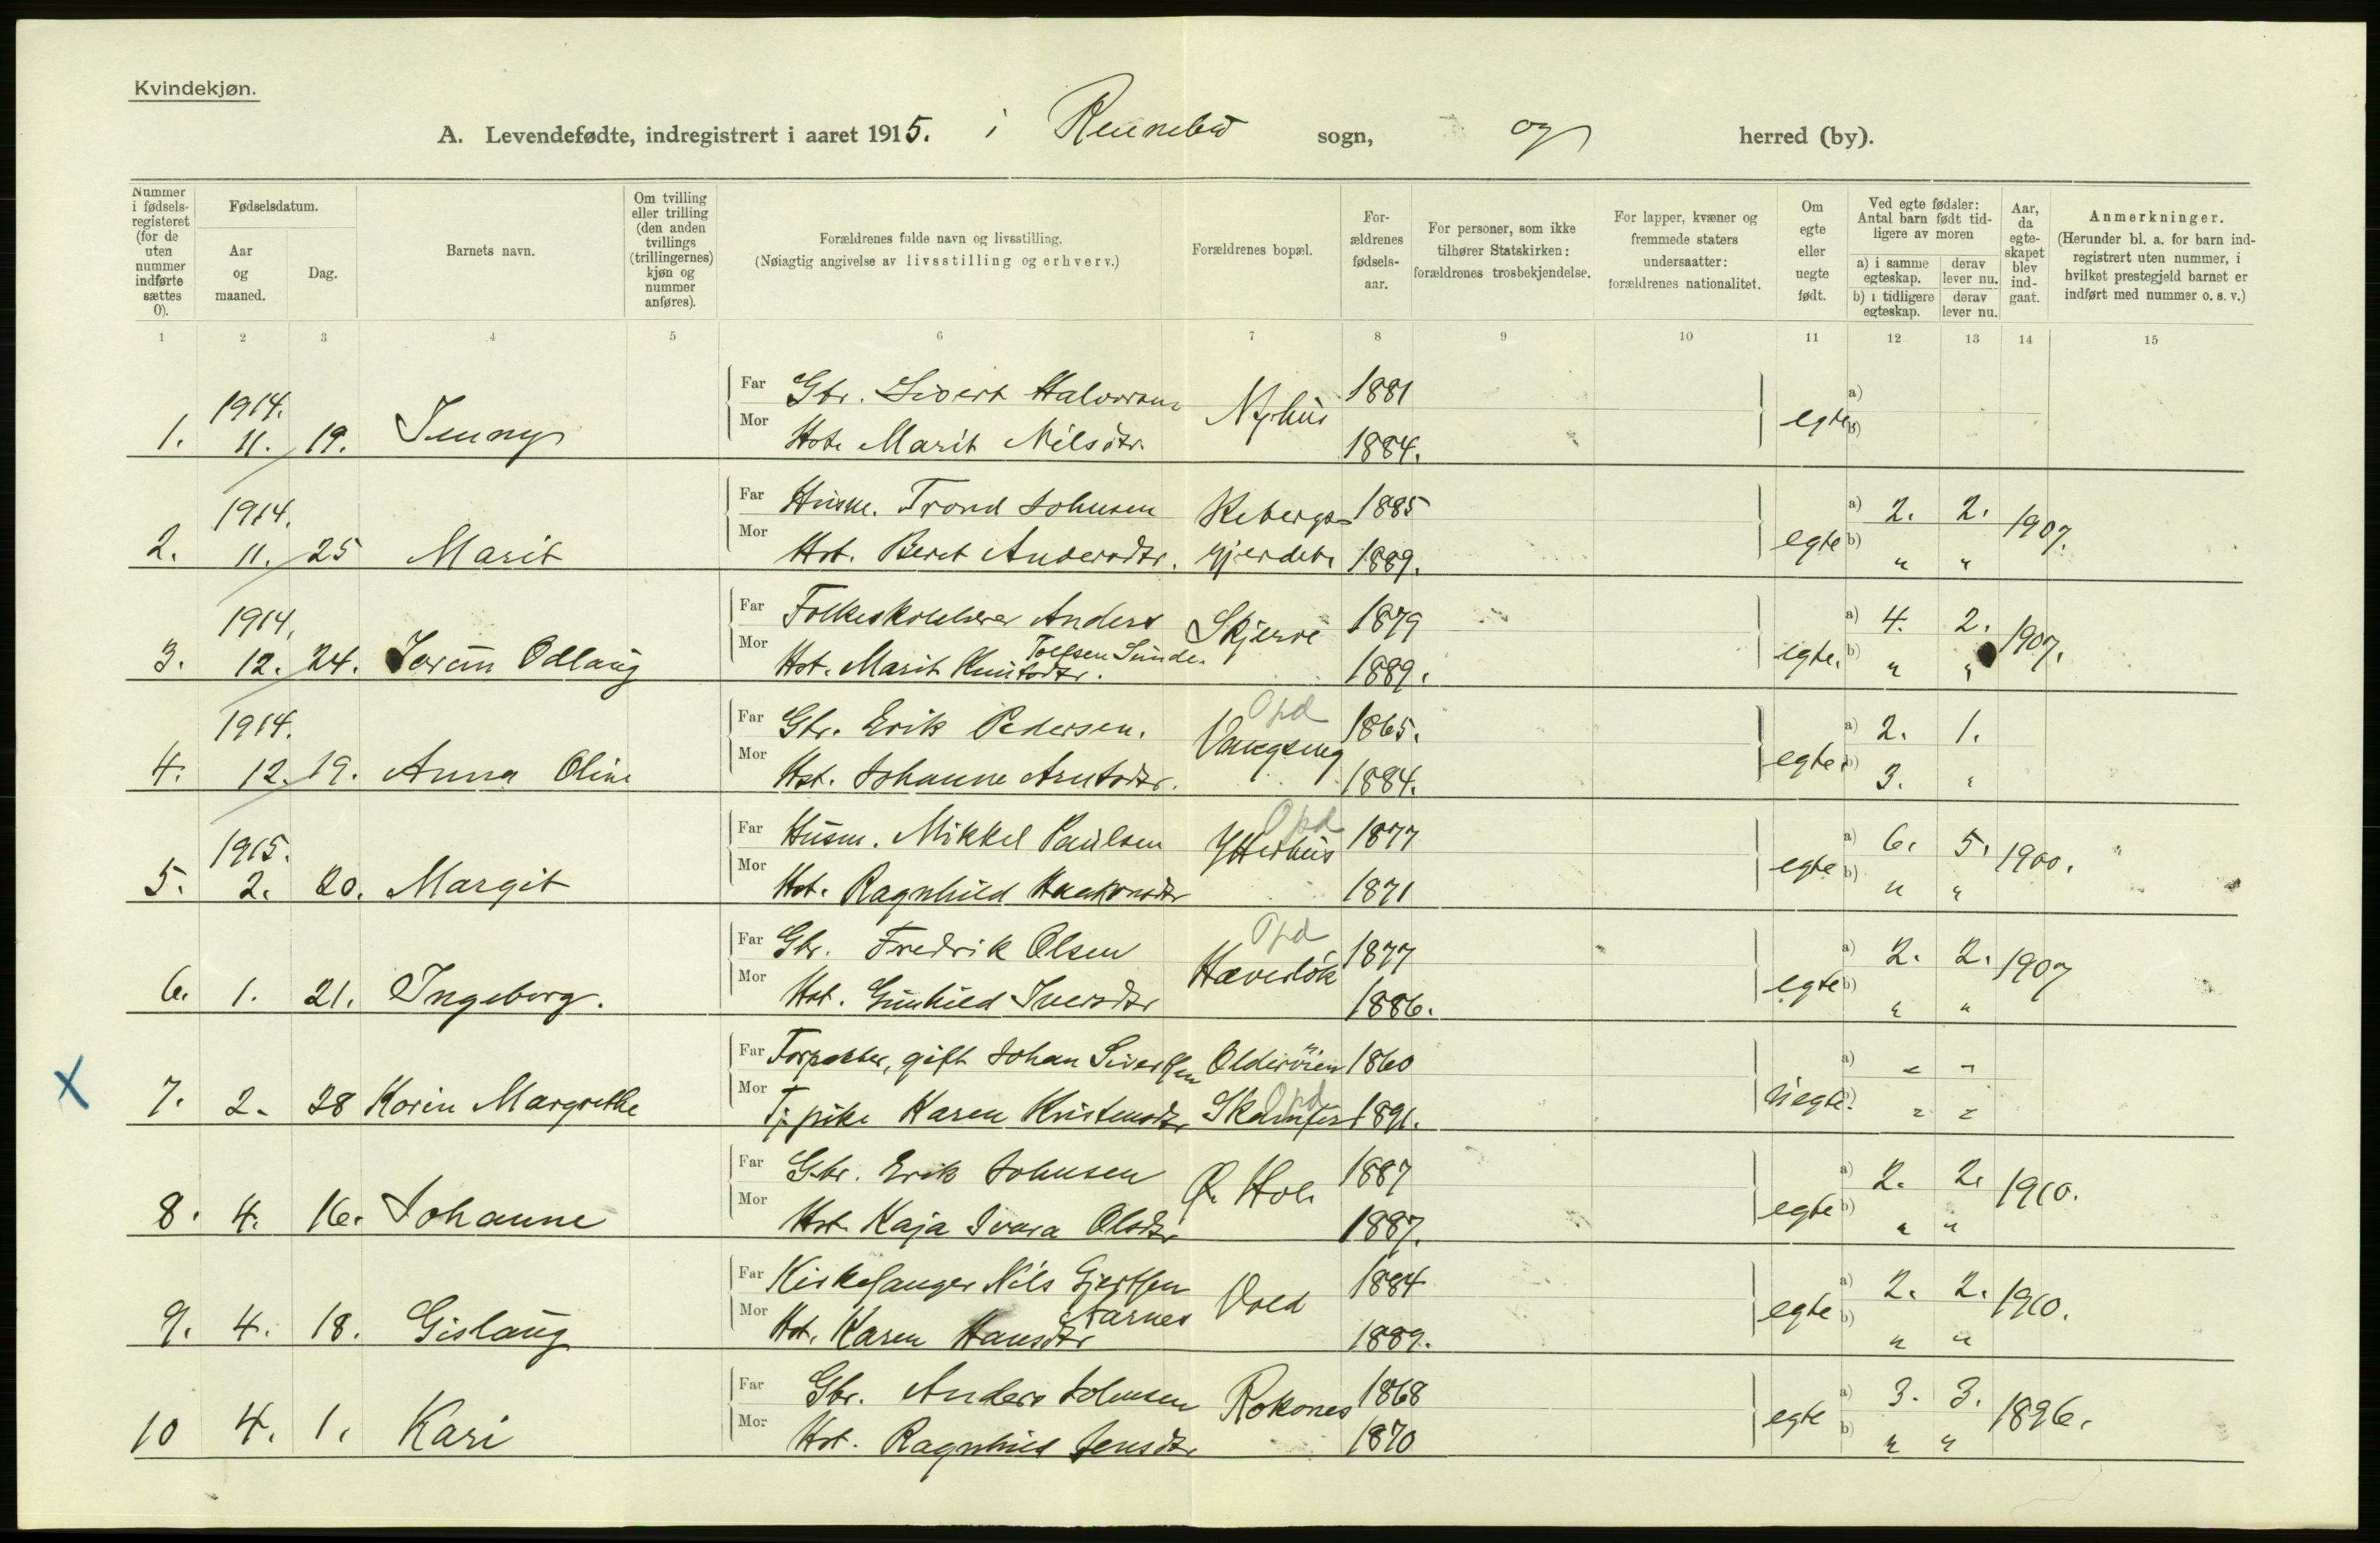 Kvindekjøn.
A. Levendefødte, indregistrert i aaret 1915. i Rennebu sogn, og herred (by).
Nummer i fødselsregisteret (for de uten nummer indførte sættes 0).
Fødselsdatum.
Aar og maaned.
Dag.
Barnets navn.
Om tvilling eller trilling (den anden tvillings (trillingernes) kjøn og nummer anføres).
Forældrenes fulde navn og livsstilling.
(Nøiagtig angivelse av livsstilling og erhverv.)
Forældrenes bopæl.
Forældrenes fødselsaar.
For personer, som ikke tilhører Statskirken: forældrenes trosbekjendelse.
For lapper, kvæner og fremmede staters undersaatter: forældrenes nationalitet.
Om egte eller uegte født.
Ved egte fødsler: Antal barn født tidligere av moren
a) i samme egteskap. derav lever nu.
b) i tidligere egteskap. derav lever nu.
Aar, da egteskapet blev indgaat.
Anmerkninger.
(Herunder bl. a. for barn indregistrert uten nummer, i hvilket prestegjeld barnet er indført med nummer o. s. v.)
1 2 3 4 5 6 7 8 9 10 11 12 13 14 15
1914. Far Gbr. Sivert Halvorsen Nyhus 1881 a)
1. 11. 19. Jenny Mor Hst. Marit Nilsdtr. 1884. egte b)
1914. Far Husm. Trond Johnsen Skebergs- 1885 a) 2. 2. 1907.
2. 11. 25 Marit Mor Hst. Beret Andersdtr. gjerdet 1889. egte b) " "
1914. Far Folkeskolelærer Anders Skjerve 1879 a) 4. 2. 1907.
Tolfsen Sunde.
3. 12. 24. Jorun Odlaug Mor Hst. Marit Knutsdtr. 1889. egte. b) " "
1914. Far Gbr. Erik Pedersen. Opd Vangseng 1865. a) 2. 1.
4. 12. 19. Anna Oline Mor Hst. Johanne Arntsdtr. 1884. egte b) 3. "
1915. Far Husm. Mikkel Paulsen Opd Ytterhus 1877 a) 6. 5. 1900.
5. 2. 20. Margit Mor Hst. Ragnhild Haakonsdtr 1871 egte b) " "
Far Gbr. Fredrik Olsen Opd 1877 a) 2. 2. 1907
6. 1. 21. Ingeborg. Mor Hst. Gunhild Iversdtr 1886. egte b) " "
Far gift Johan Sivertsen 1860 a) " "
X 7. 2. 28 Karin Margrethe Mor Tj. pike Karen Kristensdtr Opd 1891. uegte. b) " "
Far Gbr. Erik Johnsen Ø. Hol. 1887 a) 2. 2. 1910.
8. 4. 16. Johanne Mor Hst. Kaja Ivara Olsdtr 1887. egte b) " "
Far Kirkesanger Nils Gjertsen Vold 1884 a) 2. 2. 1910.
Aarnes
9. 4. 18. Gislaug Mor Hst. Karen Hansdtr 1889. egte b) " "
Far Gbr. Anders Johnsen Rokones 1868 a) 3. 3. 1896.
10 4. 1. Kari Mor Hst. Ragnhild Jensdtr 1870 egte b) " "